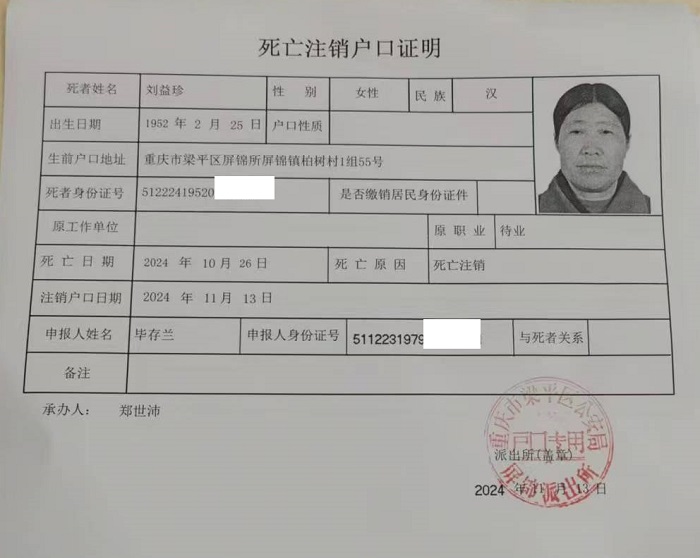 死亡注销户口证明
死者姓名 刘益珍 性 别 女性 民 族 汉
出生日期 1952 年 2 月 25 日 户口性质
生前户口地址 重庆市梁平区屏锦所屏锦镇柏树村1组55号
死者身份证号 51222419520 是否缴销居民身份证件
原工作单位 原 职 业 待业
死 亡 日 期 2024 年 10 月 26 日 死 亡 原 因 死亡注销
注销户口日期 2024 年 11 月 13 日
申报人姓名 毕存兰 申报人身份证号 5112231979 与死者关系
备注
承办人： 郑世沛
重庆市梁平区公安局
户口专用
派出所(盖章)
屏锦派出所
2024 年 11 月 13 日